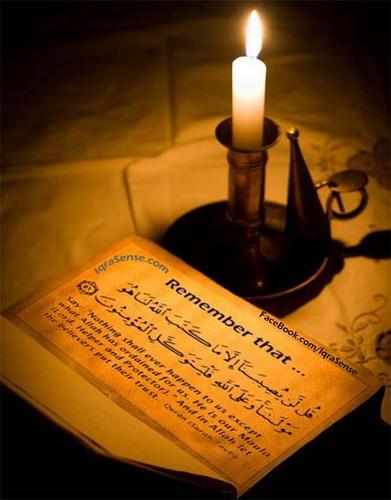 IqraSense.com
Remember that...
FaceBook.com/IqraSense
قُل لَّن يُصِيبَنَا إِلَّا مَا كَتَبَ اللَّهُ لَنَا هُوَ
مَوْلَانَا وَعَلَى اللَّهِ فَلْيَتَوَكَّلِ الْمُؤْمِنُونَ
Say: "Nothing shall ever happen to us except
what Allah has ordained for us. He is our Maula
(Lord, Helper and Protector)." And in Allah let
the believers put their trust
Quran (Surah